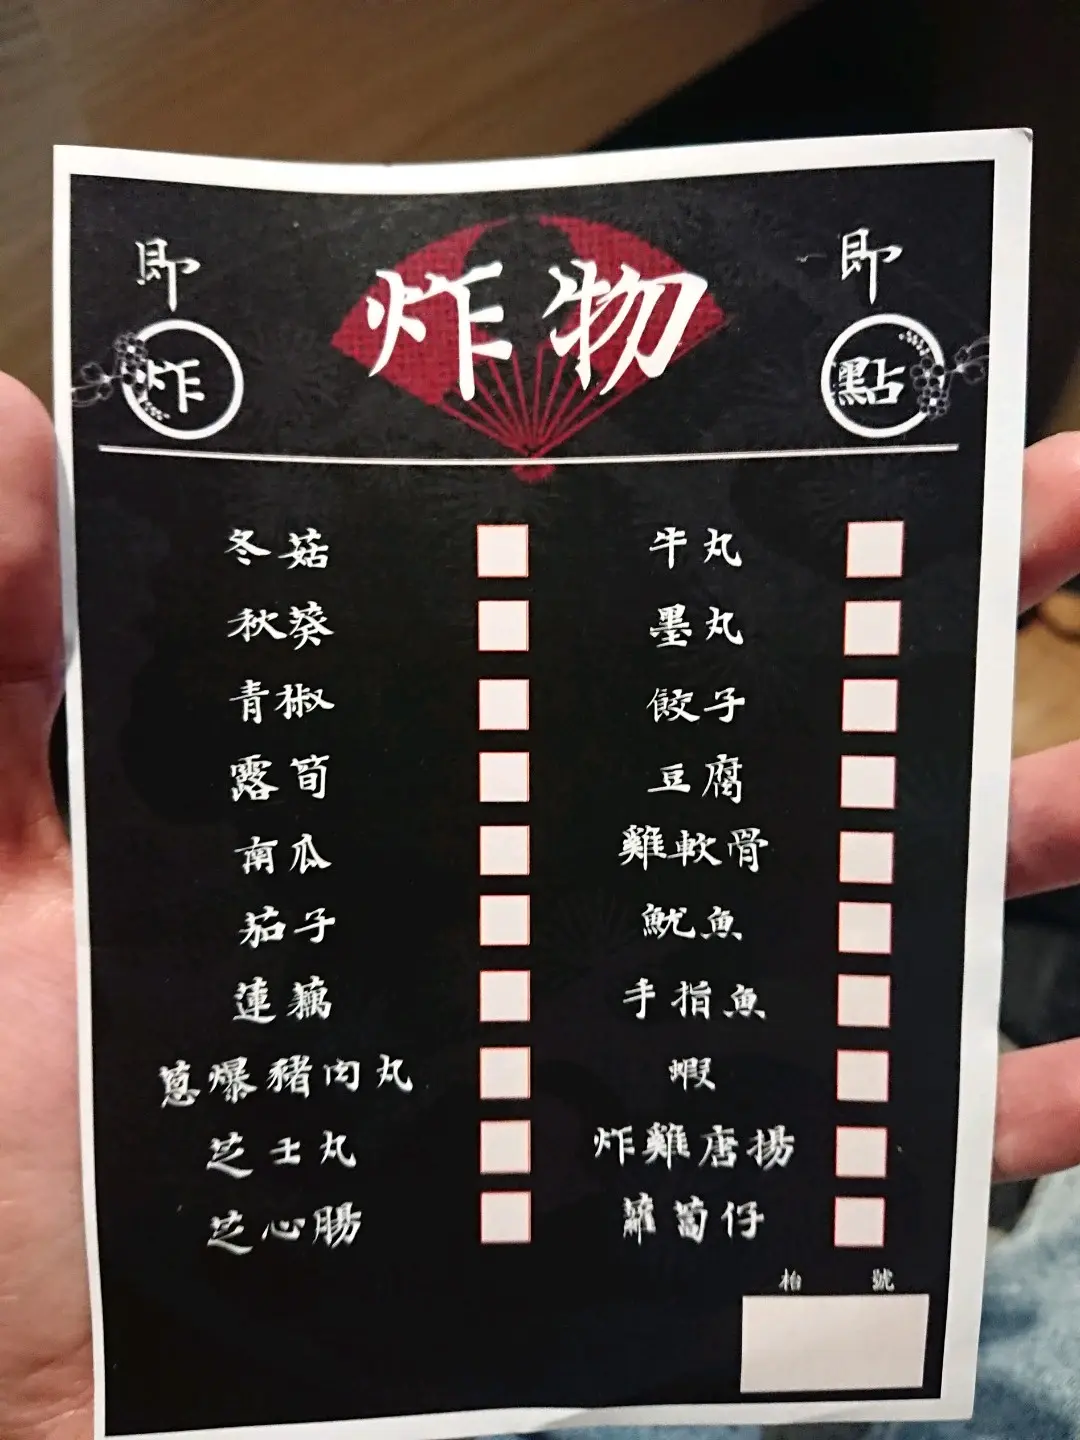 即炸
炸物
即點
冬菇
秋葵
青椒
露筍
南瓜
茄子
蓮藕
蔥爆豬肉丸
芝士丸
芝心腸
牛丸
墨丸
餃子
豆腐
雞軟骨
魷魚
手指魚
蝦
炸雞唐揚
蘿蔔仔
枱號